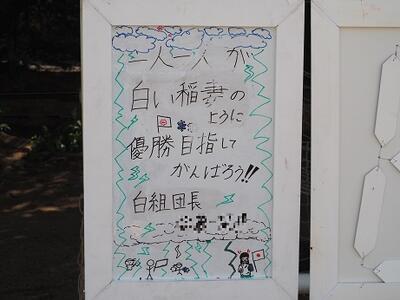 一人一人が
白い稲妻の
ように
優勝目指して
がんばろう!!
白組団長